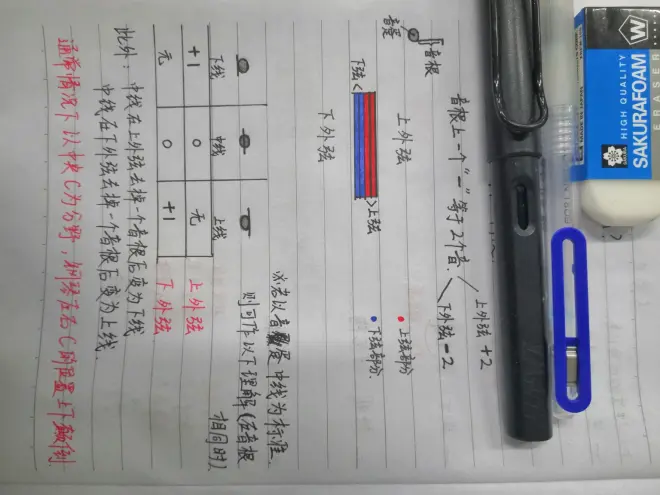 音根
音蛋
音根上一个"一"等于2个音.
上外弦+2
下外弦-2
上外弦
下弦<
>上弦
下外弦
上弦部分
下弦部分.
若以音蛋中线为标准
则可作以下理解(在音根
相同时)
下线 中线 上线
+1 0 无 上外弦
无 0 +1 下外弦
此外:中线在上外弦去掉一个音根后变为下线
中线在下外弦去掉一个音根后变为上线.
通常情况下以中央C为分野,钢琴在
C
上下颠倒
SAKURAFOAM W
HIGH QUALITY